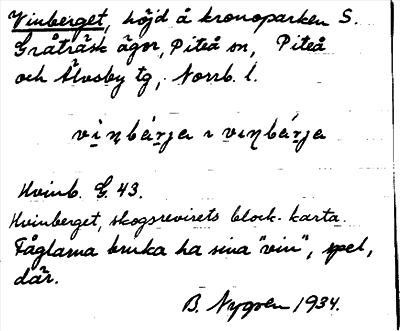 Vinberget, höjd å kronoparken S.
Gråträsk ägor, Piteå sn, Piteå
och Älvsby tg, Norrb. l.
vin̥bárja ı vin̥bárja
Hvinb. G. 43.
Hvinberget, skogsrevirets block-karta.
Fåglarna bruka ha sina "vin", spel,
där.
B. Nygren 1934.